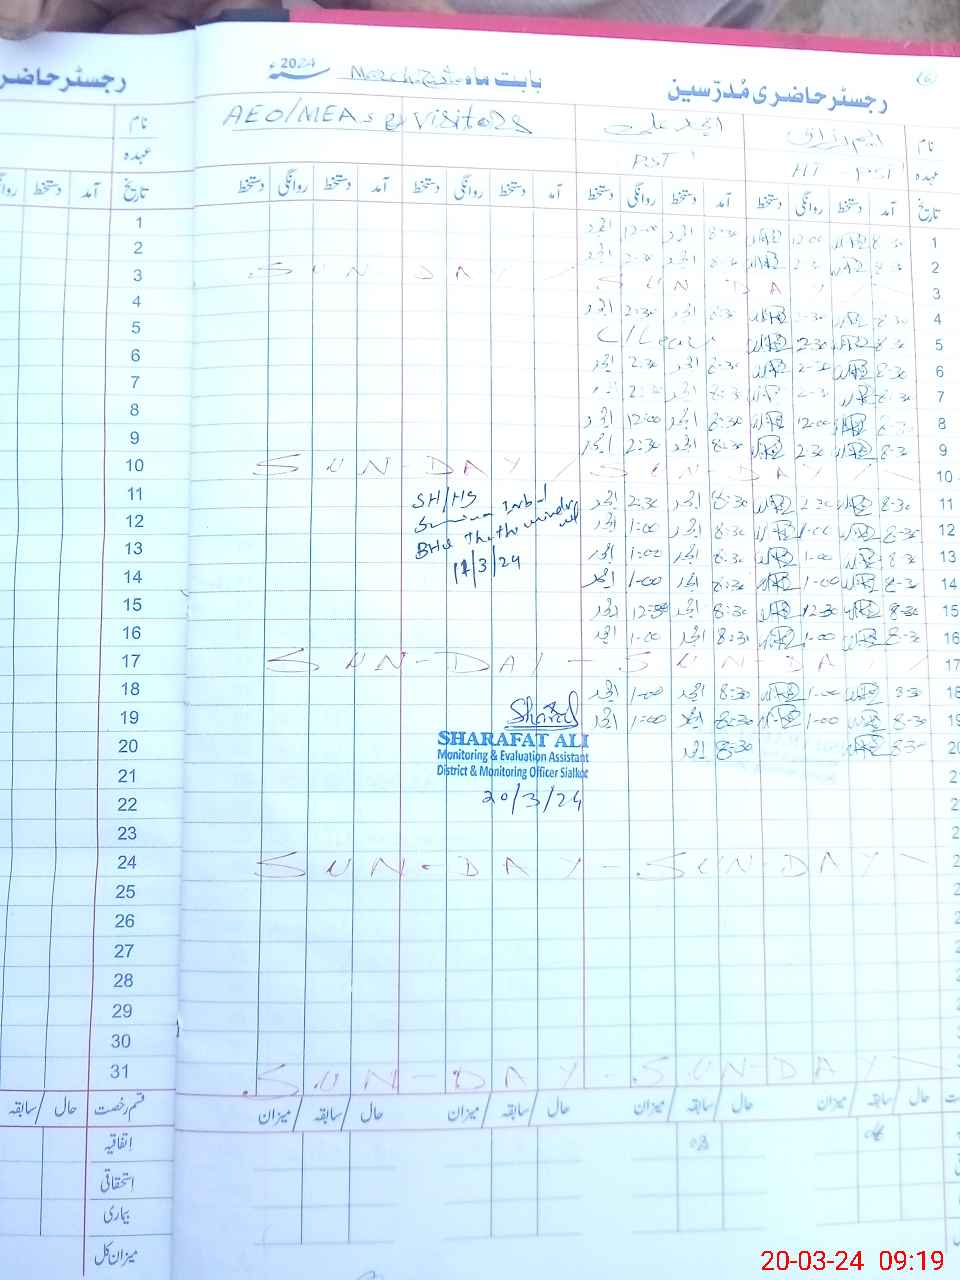 رجسٹر حاضری مُدرّسین
بابت ماہ March 2024 سنہ 2024
(6)
رجسٹر حاضر
نام
امجد علی
AEO/MEAs & VISITORS
نام
عہدہ
HT
PST
عہدہ
تاریخ آمد دستخط روانگی دستخط آمد دستخط روانگی دستخط آمد دستخط روانگی دستخط آمد دستخط روانگی دستخط
تاریخ آمد دستخط
1 8-30 12-00 8-30 امجد 12-00 امجد 1
2 امجد امجد 2
3 SUNDAY SUNDAY 3
4 8-30 امجد 2:30 امجد 4
5 8-30 2-30 C/Leave 5
6 8-30 2-30 8-30 امجد 2-30 امجد 6
7 8-30 امجد 2-30 امجد 7
8 12-00 8-30 امجد 12:00 امجد 8
9 8-30 2-30 8-30 امجد 2:30 امجد 9
10 SUN-DAY SUN-DAY 10
11 8-30 2-30 8-30 امجد 2-30 امجد 11
12 8-30 1-00 8-30 امجد 1:00 امجد 12
13 8-30 1-00 8-30 امجد 1:00 امجد 13
14 8-30 1-00 8-30 امجد 1-00 امجد 14
15 8-30 12-30 8-30 امجد 12:30 امجد 15
16 8-30 1-00 8-30 امجد 1-00 امجد 16
17 SUN-DAY - SUN-DAY 17
18 8-30 1-00 8-30 امجد 1-00 امجد 18
19 8-30 1-00 8-30 امجد 1:00 امجد 19
20 8-30 8-30 امجد 20
SH/HS
BHU
11/3/24
Sharaf
SHARAFAT ALI
Monitoring & Evaluation Assistant
District & Monitoring Officer Sialkot
20/3/24
21
22
23
24 SUN-DAY - SUN-DAY
25
26
27
28
29
30
31 SUN-DAY - SUN-DAY
حال / سابقہ / میزان حال / سابقہ / میزان حال / سابقہ / میزان حال / سابقہ / میزان
قسم رخصت حال / سابقہ
اتفاقیہ 03 04
استحقاقی
بیماری
میزان کل
20-03-24 09:19